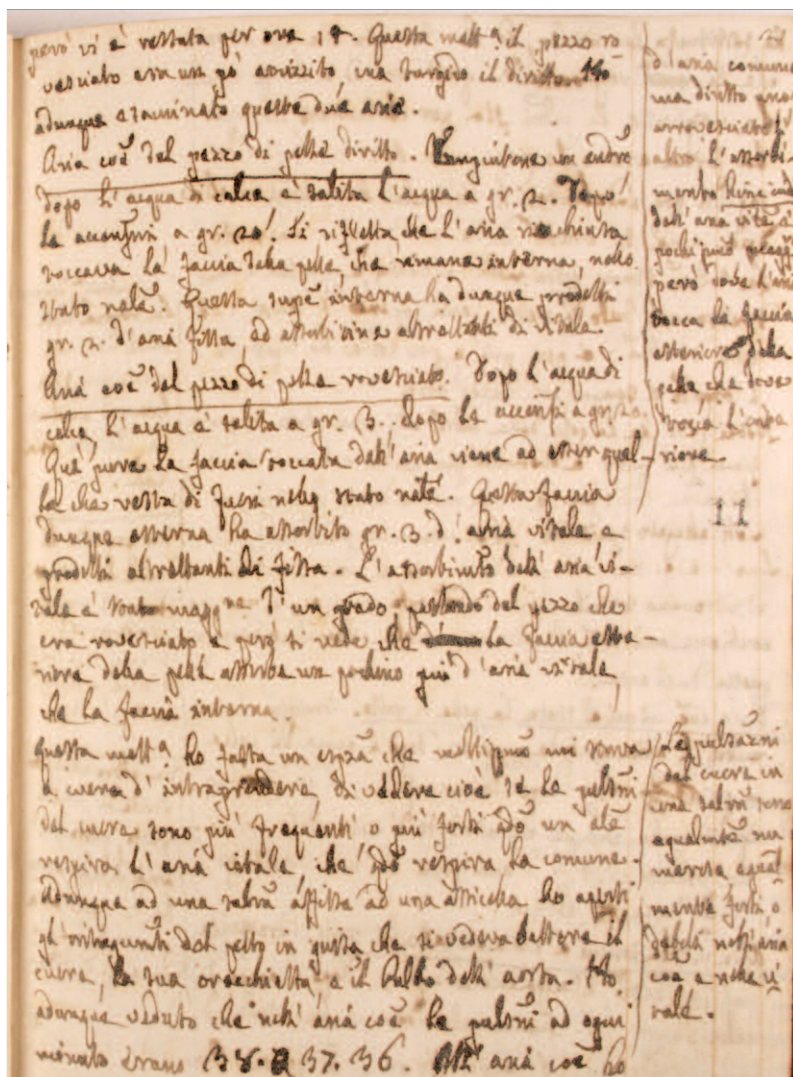 però vi è restata per ore 14. Questa matt.a il pezzo ro
vesciato era un pò avvizzito ma turgido il diritto. Ho
adunque esaminato queste due arie.
Aria coe del pezzo di pelle diritto. un
dopo l'acqua di calce è salita l'acqua a gr. 2. Dopo
le accensni a gr. 20. Si rifletta che l'aria rinchiusa
toccava la faccia della pelle, che rimane interna, nello
stato nale. Questa supe interna ha dunque prodotti
gr. 2. d'aria fissa, ed assorbitine altrettanti di vitale.
Aria coe del pezzo di pelle rovesciato. Dopo l'acqua di
calce l'acqua è salita a gr. 3. dopo le accensi a gr. 20
Quì però la faccia toccata dall'aria viene ad esser quel-
la che resta di fuori nello stato nale. Questa faccia
dunque esterna ha assorbito gr. 3. d'aria vitale e
prodotti altrettanti di fissa. L'assorbimto dell'aria vi-
tale è stato magg.re d'un grado parlando del pezzo che
era rovesciato e però si vede che la faccia este-
riore della pelle assorbe un pochino più d'aria vitale,
che la faccia interna.
Questa matt.a ho fatta un espza che moltissimo mi stava
a cuore d'intraprendere, di vedere cioè se le pulsni
del cuore sono più frequenti o più forti qdo un ale
respira l'aria vitale, che qdo respira la comune.
Adunque ad una salm affissa ad una assicella ho aperti
gl'integumti del petto in guisa che si vedeva battere il
cuore, la sua orecchietta e il bulbo dell'aorta. Ho
adunque veduto che nell'aria coe le pulsni ad ogni
minuto erano 38. 37. 36. Nell'aria coe ho
d'aria comune
ma diritto uno
arrovesciato l'
altro l'assorbi-
mento
dell'aria vitle è
pochissmo magg
però dove l'aria
tocca la faccia
esteriore della
pelle che dove
tocca l'inte
riore.
11
Le pulsazni
del cuore in
una salmn sono
egualmte nu
merose egual
mente forti, o
deboli nell'aria
coe e nella vi
tale.